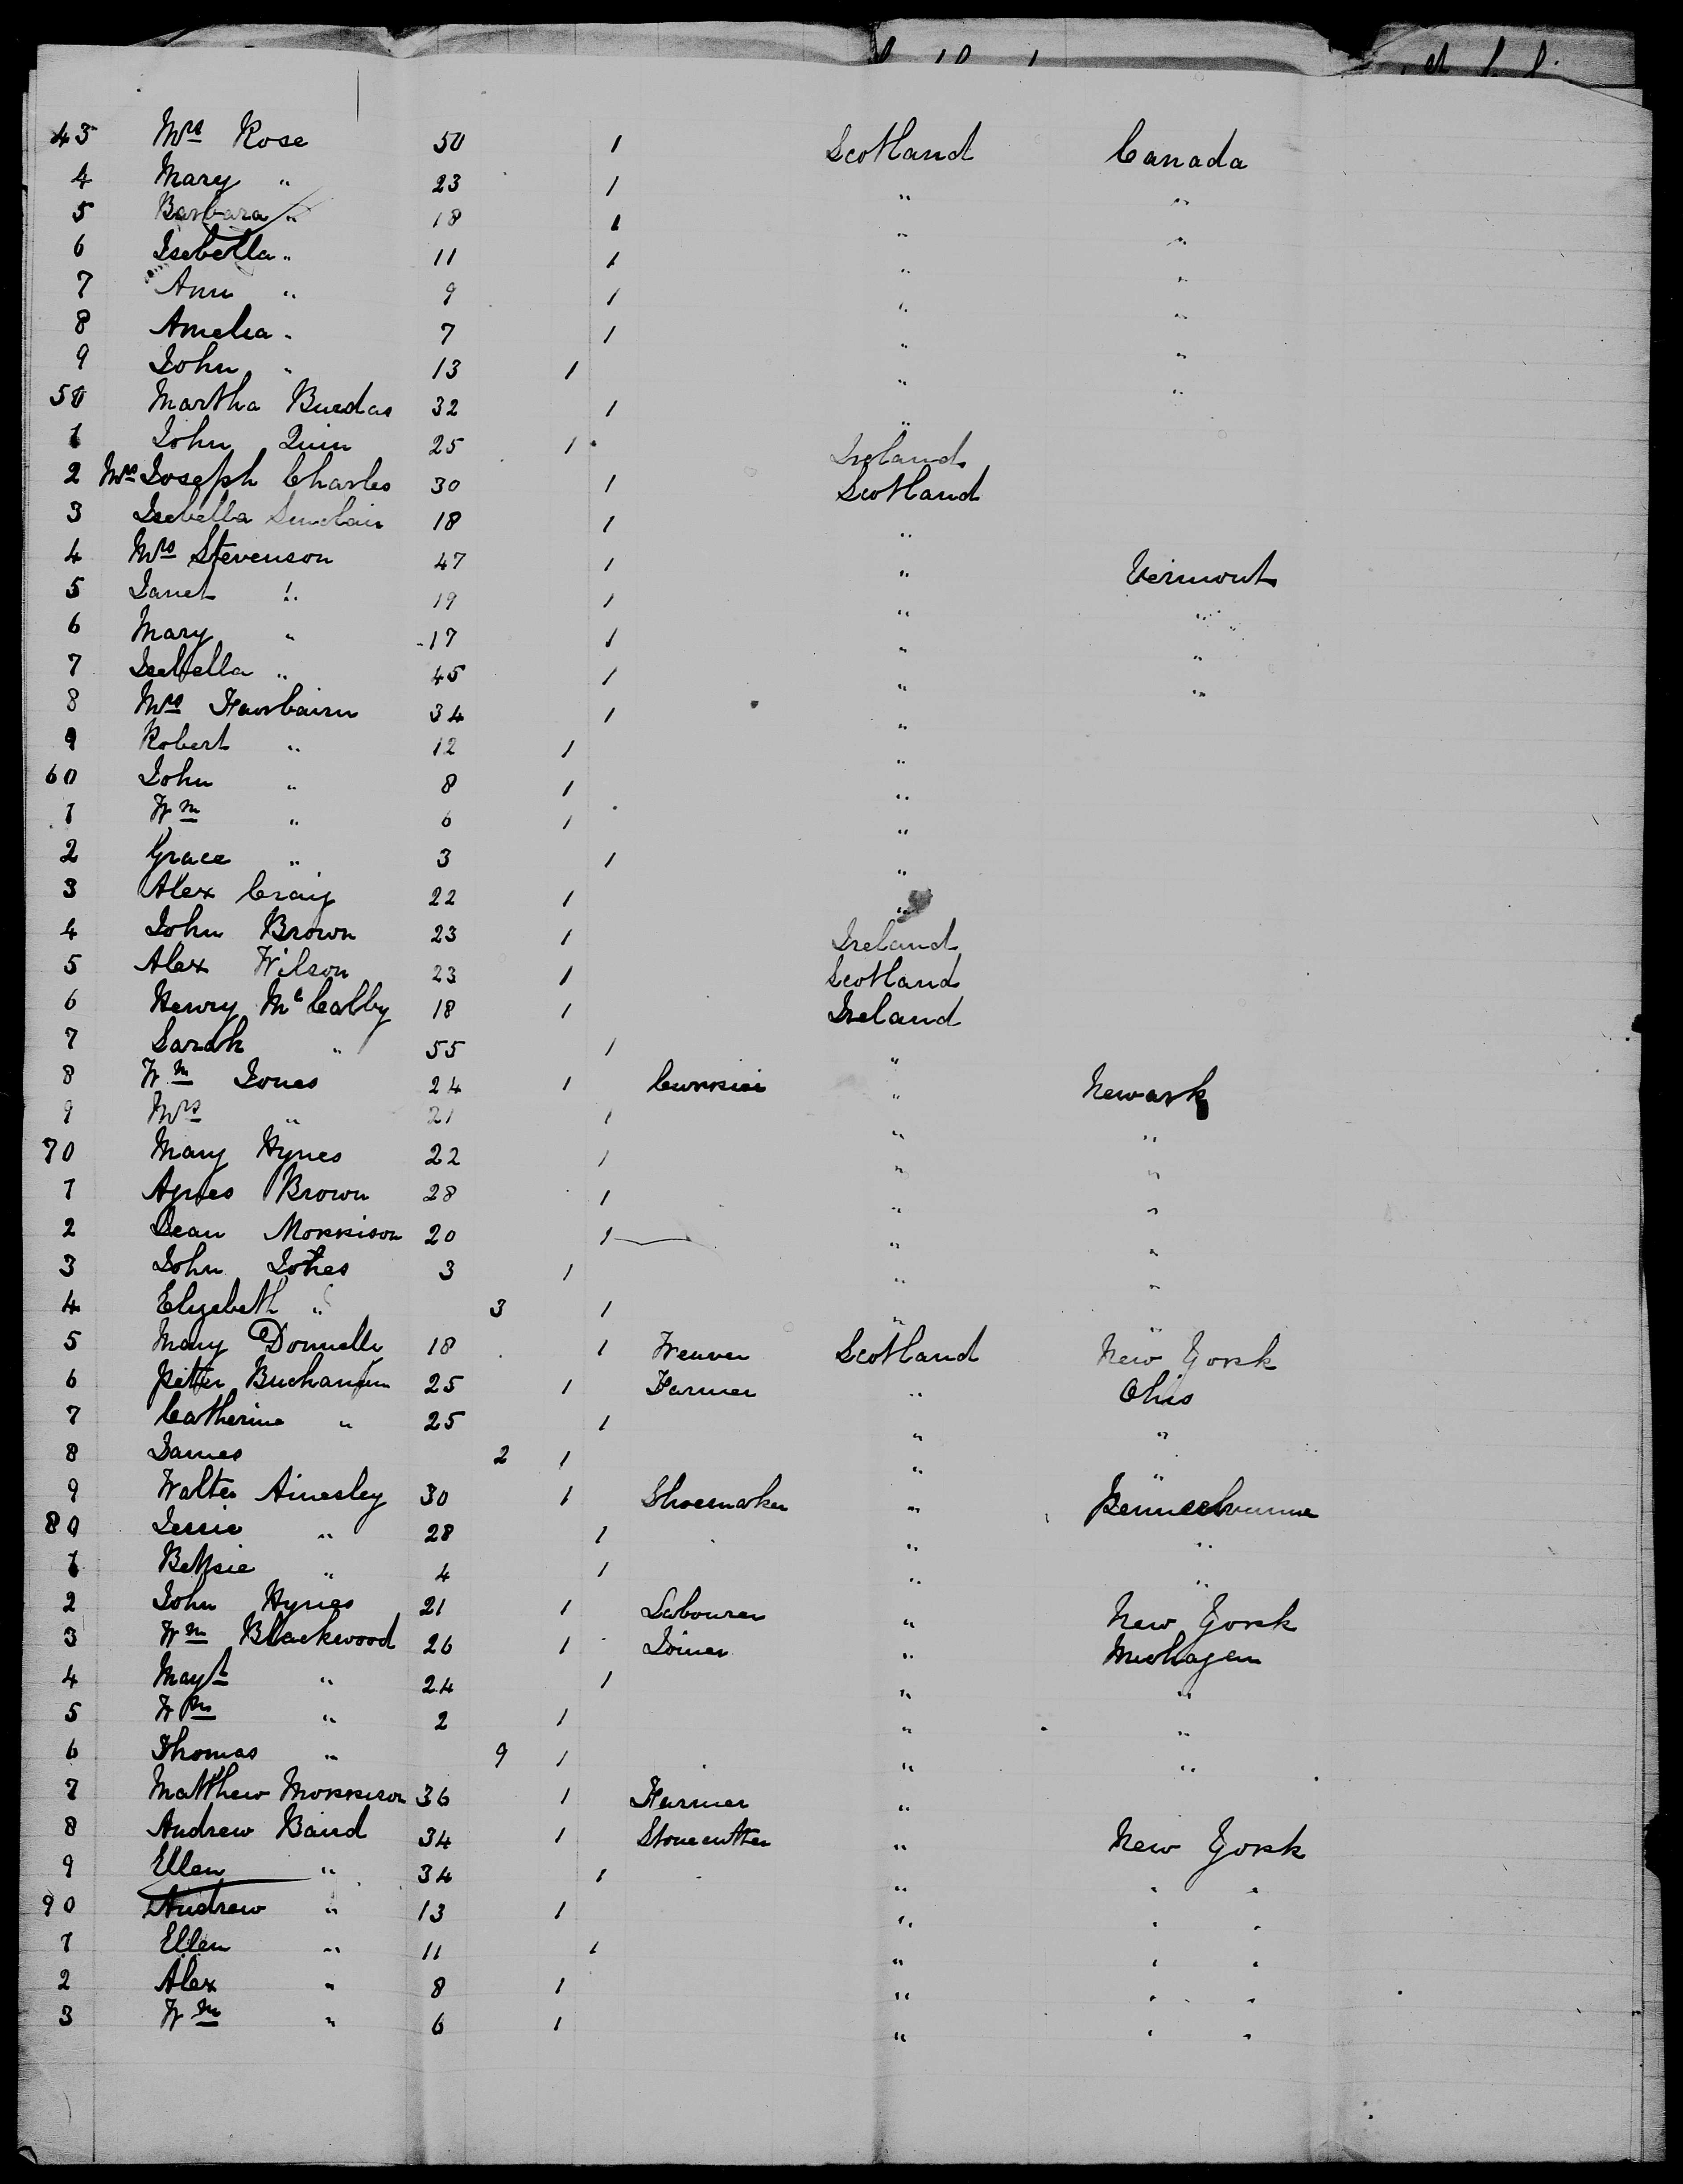 43 Mrs Rose 50 1 Scotland Canada
4 Mary " 23 1 " "
5 Barbara " 18 1 " "
6 Isebella " 11 1 " "
7 Ann " 9 1 " "
8 Amelia " 7 1 " "
9 John " 13 1 " "
50 Martha Burdas 32 1 "
1 John Quin 25 1 Ireland
2 Mrs Joseph Charles 30 1 Scotland
3 Isebella Sinclair 18 1 "
4 Mrs Stevenson 47 1 " Vermont
5 Janet " 19 1 " "
6 Mary " 17 1 " "
7 Isebella " 45 1 " "
8 Mrs Fairbairn 34 1 "
9 Robert " 12 1 "
60 John " 8 1 "
1 Wm " 6 1 "
2 Grace " 3 1 "
3 Alex Craig 22 1 "
4 John Brown 23 1 Ireland
5 Alex Wilson 23 1 Scotland
6 Henry Mc Calby 18 1 Ireland
7 Sarah " 55 1 "
8 Wm Jones 24 1 Currier " Newark
9 Mrs " 21 1 " "
70 Mary Hynes 22 1 " "
1 Agnes Brown 28 1 " "
2 Dean Morrison 20 1 " "
3 John Jones 3 1 " "
4 Elizebeth " 3 1 " "
5 Mary Donnelly 18 1 Weaver Scotland New York
6 Peter Buchanan 25 1 Farmer " Ohio
7 Catherine " 25 1 " "
8 James 2 1 " "
9 Walter Ainesley 30 1 Shoemaker "
80 Jessie " 28 1 " "
1 Betsie " 4 1 " "
2 John Hynes 21 1 Labourer " New York
3 Wm Blackwood 26 1 Joiner " Michagen
4 Mayt " 24 1 " "
5 Wm " 2 1 " "
6 Thomas " 9 1 " "
7 Matthew Morrison 36 1 Farmer "
8 Andrew Baird 34 1 Stonecutter " New York
9 Ellen " 34 1 " " "
90 Andrew " 13 1 " " "
1 Ellen " 11 1 " " "
2 Alex " 8 1 " " "
3 Wm " 6 1 " " "